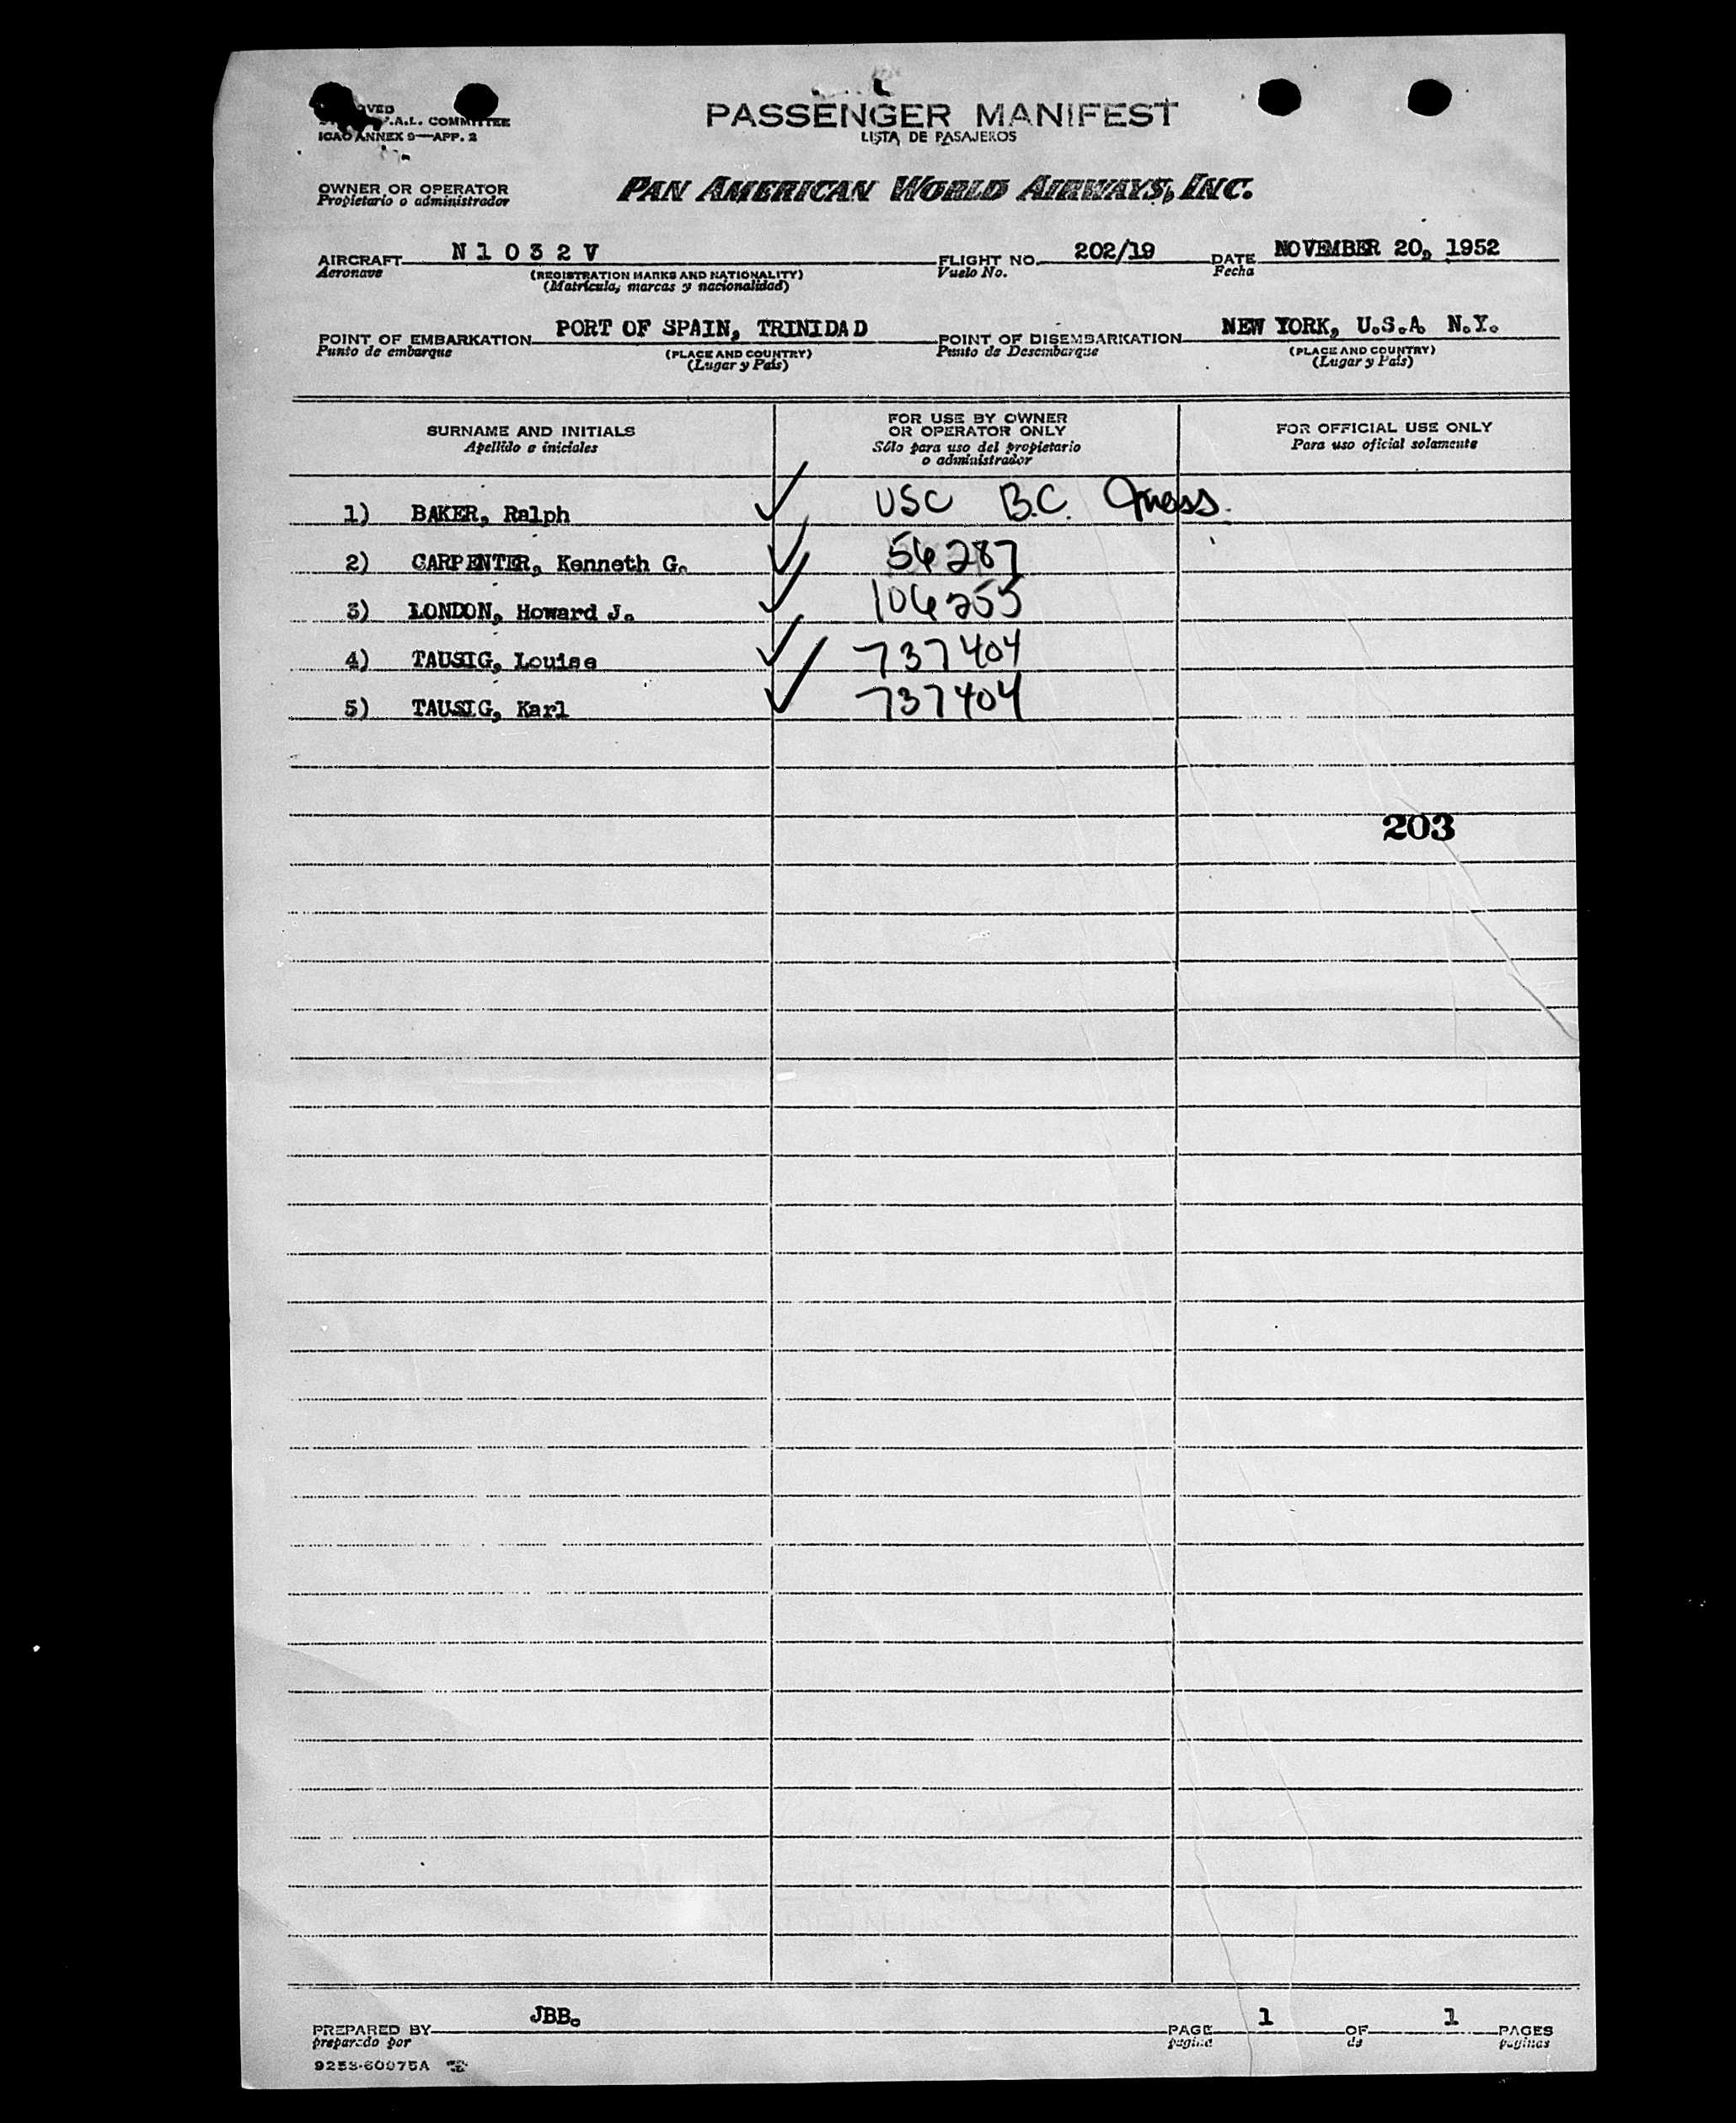 PASSENGER MANIFEST
LISTA DE PASAJEROS
OVED
F.A.L. COMMITTEE
ICAO ANNEX 9—APP. 2
OWNER OR OPERATOR
Propietario o administrador
PAN AMERICAN WORLD AIRWAYS, INC.
AIRCRAFT N 1 0 3 2 V FLIGHT NO. 202/19 DATE NOVEMBER 20, 1952
Aeronave (REGISTRATION MARKS AND NATIONALITY) Vuelo No. Fecha
(Matrícula, marcas y nacionalidad)
POINT OF EMBARKATION PORT OF SPAIN, TRINIDAD POINT OF DISEMBARKATION NEW YORK, U.S.A. N.Y.
Punto de embarque (PLACE AND COUNTRY) Punto de Desembarque (PLACE AND COUNTRY)
(Lugar y País) (Lugar y País)
SURNAME AND INITIALS
Apellido e iniciales
FOR USE BY OWNER
OR OPERATOR ONLY
Sólo para uso del propietario
o administrador
FOR OFFICIAL USE ONLY
Para uso oficial solamente
1) BAKER, Ralph ✓ USC B.C. Mass.
2) CARPENTER, Kenneth G. ✓ 56287
3) LONDON, Howard J. ✓ 106255
4) TAUSIG, Louise ✓ 737404
5) TAUSIG, Karl ✓ 737404
203
PREPARED BY JBB. PAGE 1 OF 1 PAGES
preparado por pagina de paginas
9253-60075A